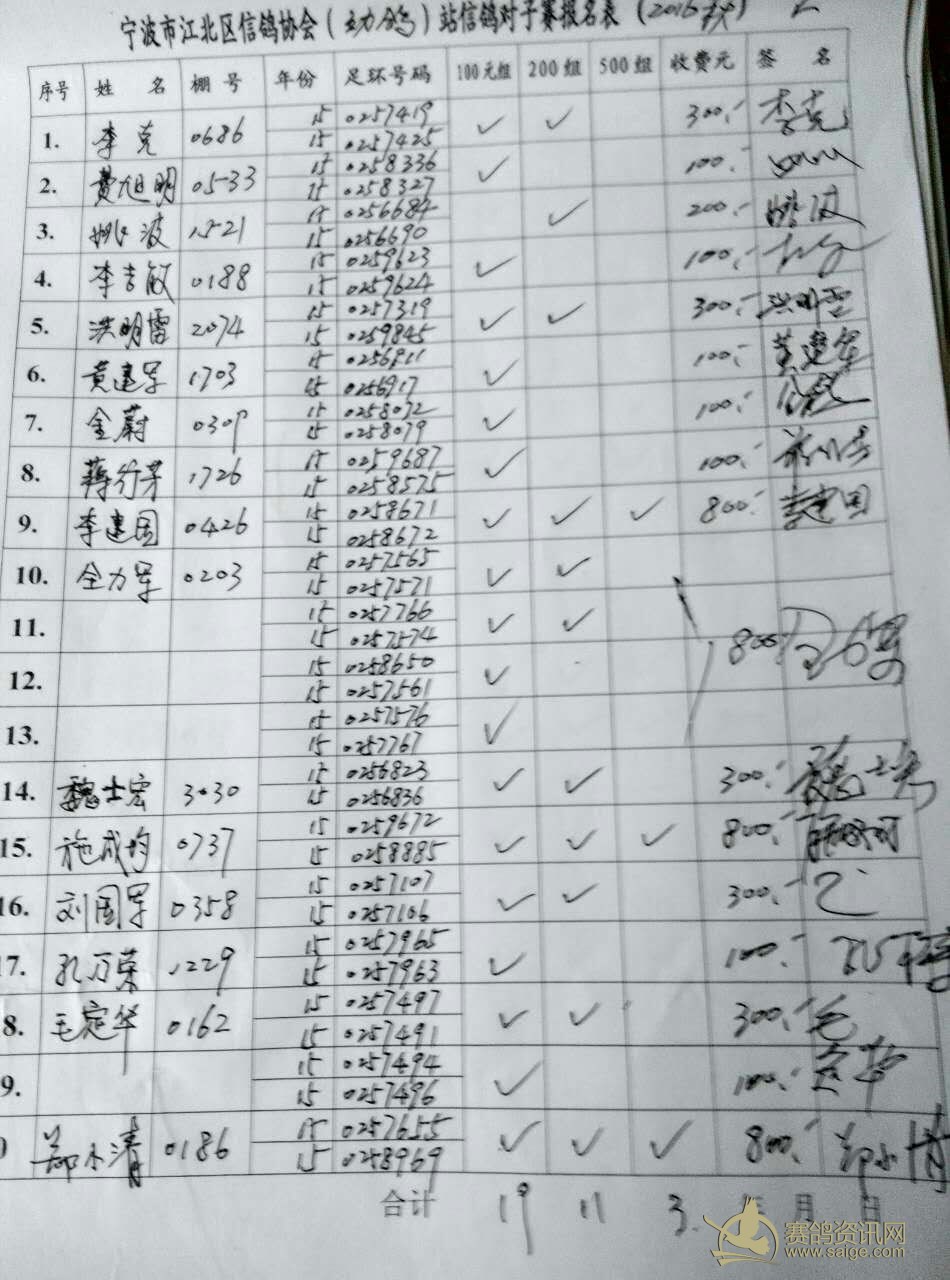 宁波市江北区信鸽协会(主功鸽)站信鸽对子赛报名表(2016秋)
序号 姓名 棚号 年份 足环号码 100元组 200组 500组 收费元 签名
1. 李克 0686 15 0257419 ✓ ✓ 300.- 李克
15 0257425
2. 费旭明 0533 15 0258336 ✓ 100.-
15 0258327
3. 姚波 1521 15 0256684 ✓ 200.- 姚波
15 0256690
4. 李吉敏 0188 15 0259623 ✓ 100.-
15 0259624
5. 洪明雷 2074 15 0257319 ✓ ✓ 300.- 洪明雷
15 0259845
6. 黄建军 1703 15 0256911 ✓ 100.- 黄建军
15 0256917
7. 金蔚 0309 15 0258072 ✓ 100.-
15 0258079
8. 蒋行芳 1726 15 0259687 ✓ 100.-
15 0258575
9. 李建国 0426 15 0258671 ✓ ✓ ✓ 800.- 李建国
15 0258672
10. 全力军 0203 15 0257565 ✓ ✓
15 0257571
11. 15 0257766 ✓ ✓ 800.-
15 0257574
12. 15 0258650 ✓
15 0257561
13. 15 0257576 ✓
15 0257767
14. 魏士宏 3030 15 0256823 ✓ ✓ 300.-
15 0256836
15. 施成均 0737 15 0259672 ✓ ✓ ✓ 800.-
15 0258885
16. 刘国军 0358 15 0257107 ✓ ✓ 300.-
15 0257106
17. 孔万荣 1229 15 0257965 ✓ 100.-
15 0257963
8. 毛定华 0162 15 0257497 ✓ ✓ 300.- 毛
15 0257491
9. 15 0257494 ✓ 100.- 定华
15 0257496
郑小清 0186 15 0257655 ✓ ✓ ✓ 800.- 郑小清
15 0258969
合计 19 11 3. 年 月 日
赛鸽资讯网
www.saige.com